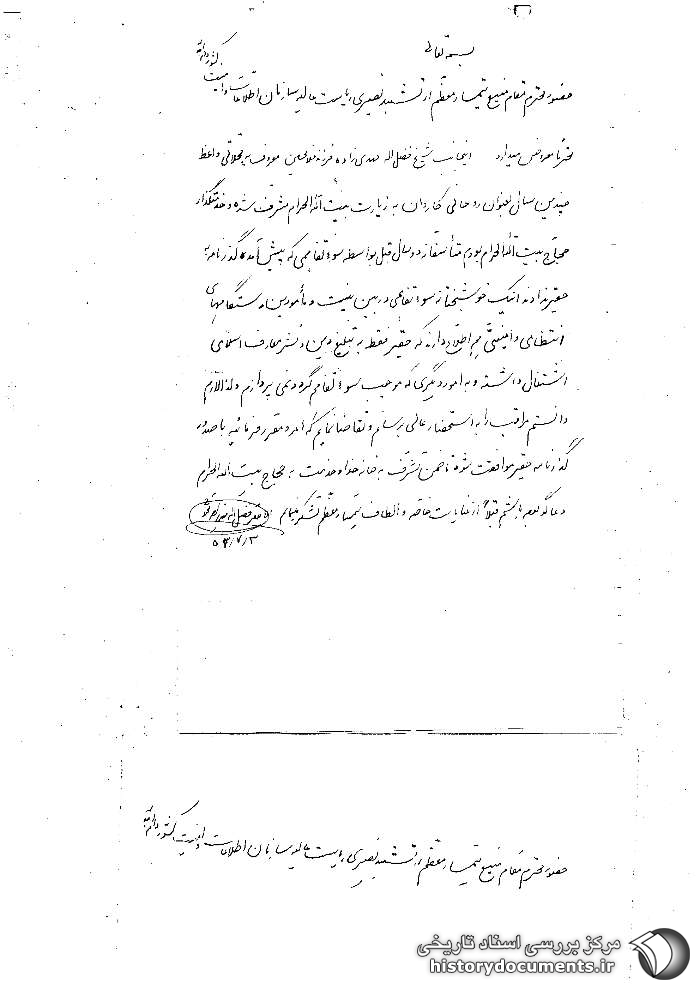 بسمه تعالی
حضور محترم مقام منیع تیمسار معظم ارتشبد نصیری ریاست عالیه سازمان اطلاعات و امنیت کشور
محترماً معروض میدارد اینجانب شیخ فضل اله مهدی زاده فرزند غلامحسین معروف به محلاتی واعظ
چندین سالی بعنوان روحانی کاروان به زیارت بیت الله الحرام مشرف شده و خدمتگذار
حجاج بیت الله الحرام بودم متأسفانه دو سال قبل بواسطه سوء تفاهمی که پیش آمد گذرنامه
حقیر ندادند اینک خوشبختانه سوء تفاهمی در بین نیست و مأمورین دستگاههای
انتظامی و امنیتی هم اطلاع دارند که حقیر فقط به تبلیغ دین و نشر معارف اسلامی
اشتغال داشته و به امور دیگری که موجب سوء تفاهم گردد نمی پردازم ولذا لازم
دانستم مراتب را به استحضار عالی برسانم و تقاضا نمایم که امر و مقرر فرمائید با صدور
گذرنامه حقیر موافقت شود تا ضمن تشرف به خانه خدا و خدمت به حجاج بیت الله الحرام
دعاگو بوده باشم قبلاً از عنایات خاصه و الطاف تیمسار معظم تشکر مینمایم
۵۴/۷/۳
حضور محترم مقام منیع تیمسار معظم ارتشبد نصیری ریاست عالیه سازمان اطلاعات و امنیت کشور
مرکز بررسی اسناد تاریخی
historydocuments.ir